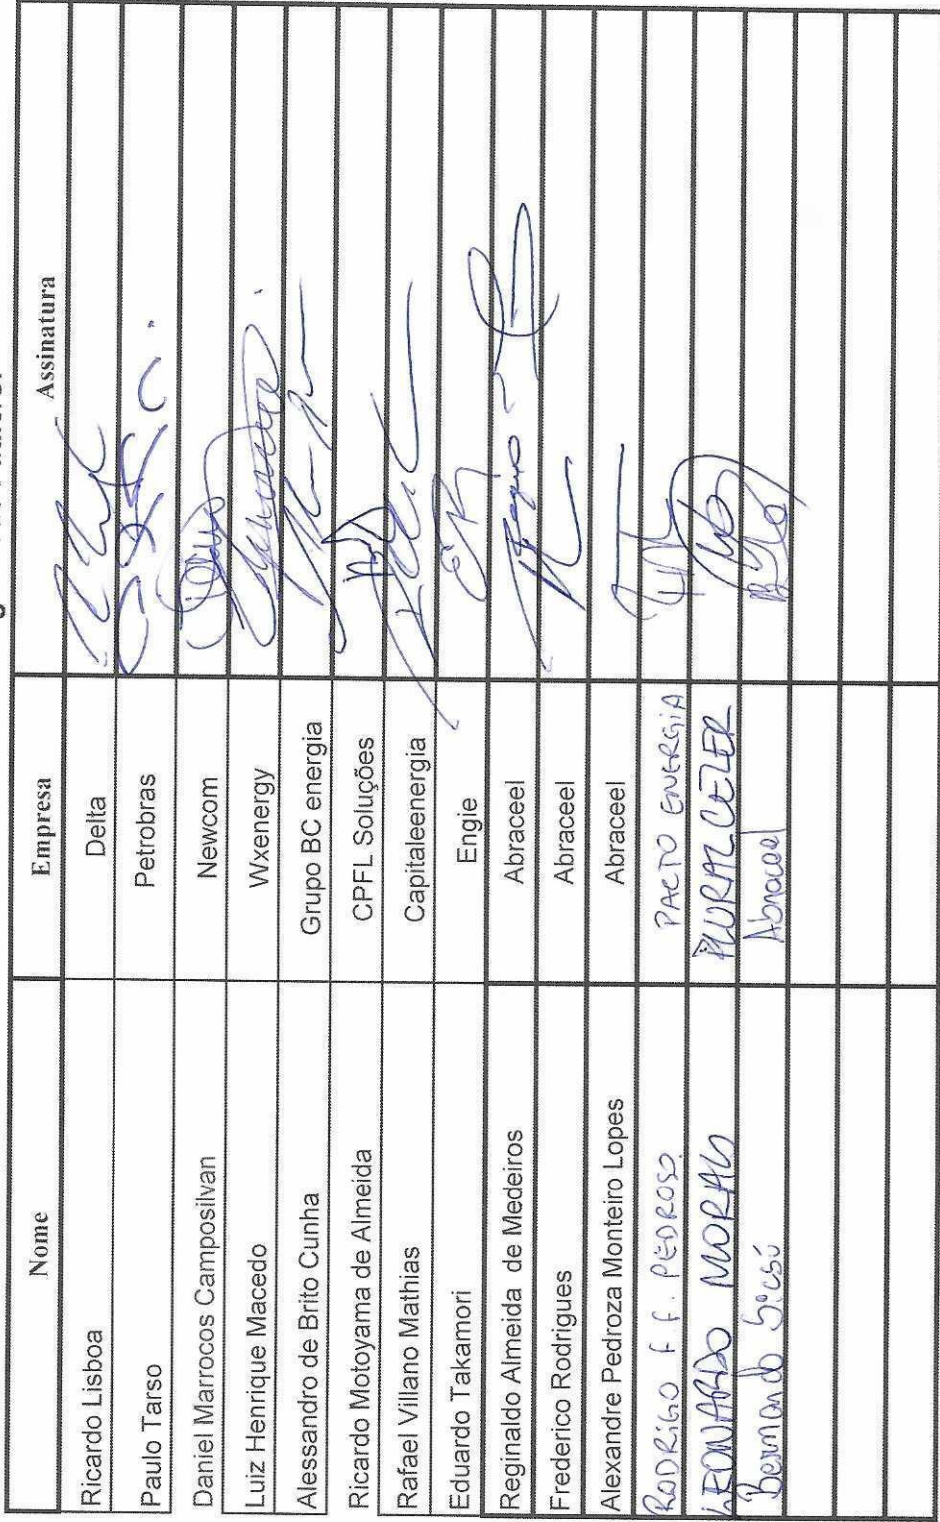 Nome Empresa Assinatura
Ricardo Lisboa Delta
Paulo Tarso Petrobras
Daniel Marrocos Camposilvan Newcom
Luiz Henrique Macedo Wxenergy
Alessandro de Brito Cunha Grupo BC energia
Ricardo Motoyama de Almeida CPFL Soluções
Rafael Villano Mathias Capitaleenergia
Eduardo Takamori Engie
Reginaldo Almeida de Medeiros Abraceel
Frederico Rodrigues Abraceel
Alexandre Pedroza Monteiro Lopes Abraceel
RODRIGO F. F. PEDROSO PACTO ENERGIA
LEONARDO MORAIS PLURAL
Bernardo Sicsú Abraceel